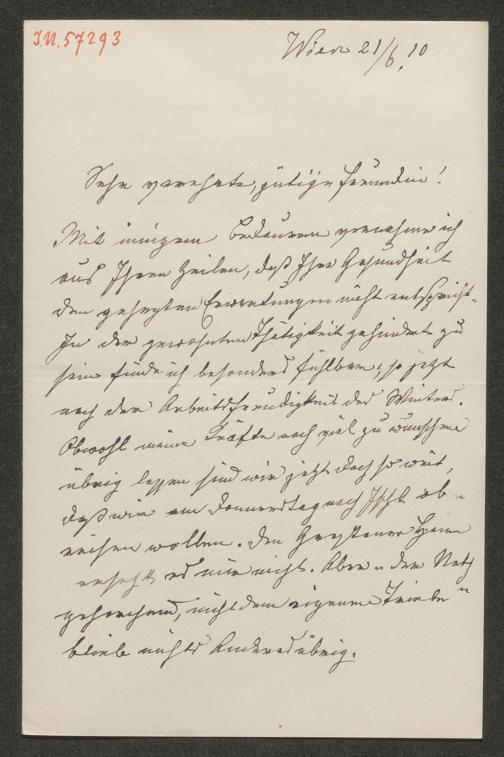 I.N. 57293
Wien 21/6. 10
Sehr verehrte, gütige Freundin!
Mit innigem Bedauern vernehme ich
aus Ihren Zeilen, daß Ihre Gesundheit
den gehegten Erwartungen nicht entspricht.
In der gewohnten Thätigkeit gehindert zu
sein finde ich besonders fühlbar, so jetzt
nach der Arbeitsfreudigkeit des Winters.
Obwohl meine Kräfte noch viel zu wünschen
übrig lassen sind wir jetzt doch so weit,
daß wir am Donnerstag nach Ischl ab-
reisen wollen. Den Gasteiner Hain
ersetzt es mir nicht. Aber "der Not
gehorchend, nicht dem eigenen Triebe"
bleibt nichts Anderes übrig.